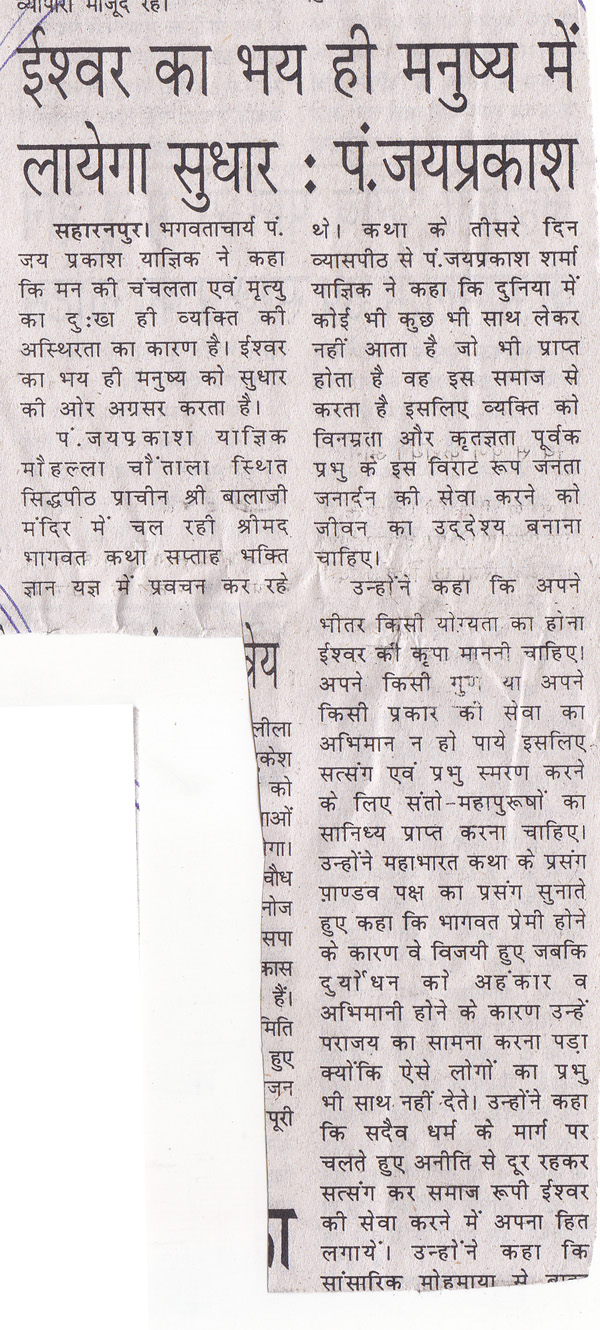 व्यापारी मौजूद रहे।
ईश्वर का भय ही मनुष्य में
लायेगा सुधार : पं.जयप्रकाश
सहारनपुर। भगवताचार्य पं.
जय प्रकाश याज्ञिक ने कहा
कि मन की चंचलता एवं मृत्यु
का दु:ख ही व्यक्ति की
अस्थिरता का कारण है। ईश्वर
का भय ही मनुष्य को सुधार
की ओर अग्रसर करता है।
पं.जयप्रकाश याज्ञिक
मौहल्ला चौंताला स्थित
सिद्धपीठ प्राचीन श्री बालाजी
मंदिर में चल रही श्रीमद
भागवत कथा सप्ताह भक्ति
ज्ञान यज्ञ में प्रवचन कर रहे
थे। कथा के तीसरे दिन
व्यासपीठ से पं.जयप्रकाश शर्मा
याज्ञिक ने कहा कि दुनिया में
कोई भी कुछ भी साथ लेकर
नहीं आता है जो भी प्राप्त
होता है वह इस समाज से
करता है इसलिए व्यक्ति को
विनम्रता और कृतज्ञता पूर्वक
प्रभु के इस विराट रूप जनता
जनार्दन की सेवा करने को
जीवन का उद्देश्य बनाना
चाहिए।
उन्होंने कहा कि अपने
भीतर किसी योग्यता का होना
ईश्वर की कृपा माननी चाहिए।
अपने किसी गुण या अपने
किसी प्रकार की सेवा का
अभिमान न हो पाये इसलिए
सत्संग एवं प्रभु स्मरण करने
के लिए संतो-महापुरूषों का
सानिध्य प्राप्त करना चाहिए।
उन्होंने महाभारत कथा के प्रसंग
पाण्डव पक्ष का प्रसंग सुनाते
हुए कहा कि भागवत प्रेमी होने
के कारण वे विजयी हुए जबकि
दुर्योधन को अहंकार व
अभिमानी होने के कारण उन्हें
पराजय का सामना करना पड़ा
क्योंकि ऐसे लोगों का प्रभु
भी साथ नहीं देते। उन्होंने कहा
कि सदैव धर्म के मार्ग पर
चलते हुए अनीति से दूर रहकर
सत्संग कर समाज रूपी ईश्वर
की सेवा करने में अपना हित
लगायें। उन्होंने कहा कि
सांसारिक मोहमाया से
लीला
केश
को
ाओं
गा।
वौध
नोज
सपा
कास
हैं।
मिति
हुए
जन
पूरी